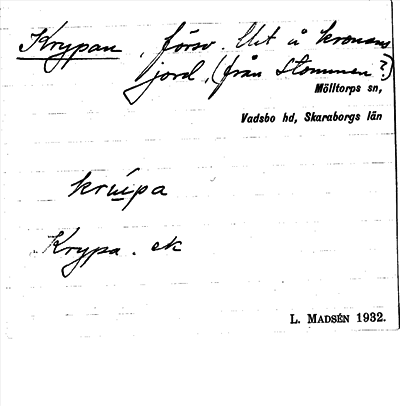 Krypan, försv. lht å kronans
jord, (från Stommen?)
Mölltorps sn,
Vadsbo hd, Skaraborgs län
krúpa
Krypa. ek
L. MADSÉN 1932.